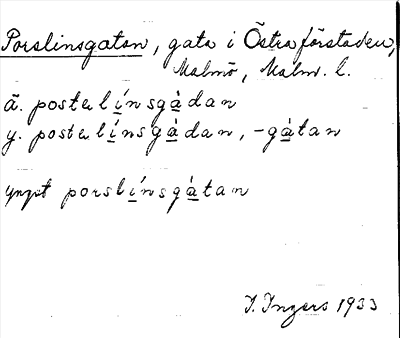 Porslinsgatan, gata i Östra förstaden,
Malmö, Malm. l.
ä. postelínsgàdan
y. postelínsgàdan, -gàtan
yngst porslínsgàtan
I. Ingers 1933